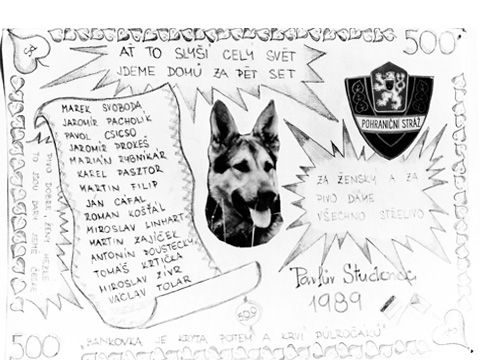 500
AŤ TO SLYŠÍ CELÝ SVĚT
JDEME DOMŮ ZA PĚT SET
MAREK SVOBODA
JAROMÍR PACHOLÍK
PAVOL CSICSO
JAROMÍR PROKEŠ
MARIÁN RYBNIKÁR
KAREL PASZTOR
MARTIN FILIP
JÁN CAFAL
ROMAN KOŠŤÁL
MIROSLAV LINHART
MARTIN ZAJÍČEK
ANTONÍN POUSTECKÝ
TOMÁŠ KRTIČKA
MIROSLAV ŽIVR
VÁCLAV TOLAR
POHRANIČNÍ STRÁŽ
ZA ŽENSKY A ZA
PIVO DÁME
VŠECHNO STŘELIVO
PIVO DOBRÉ, ŽENY HEZKÉ
TO JSOU DARY ZEMĚ ČESKÉ
Pavlův Studenec
1989
500
"BANKOVKA JE KRYTA POTEM A KRVÍ PŮLROČÁKŮ"